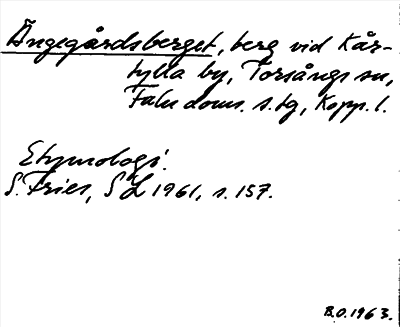 Ängegårdsberget, berg vid Kår-
tylla by, Torsångs sn,
Falu doms. s. tg, Kopp. l.
Etymologi:
S. Fries, SL 1961, s. 157.
B.O. 1963.